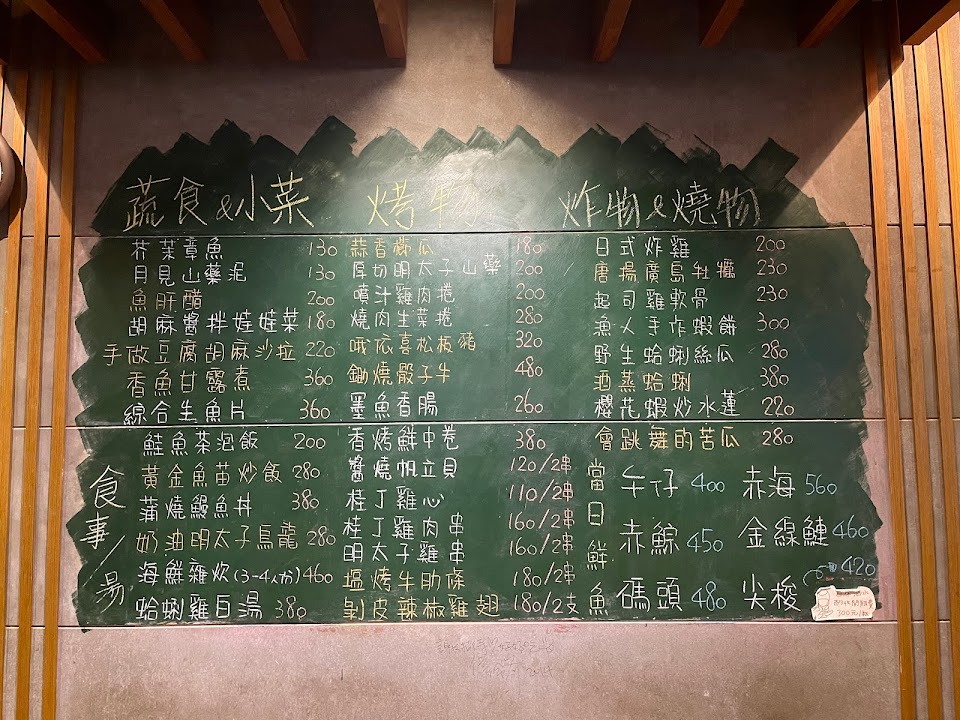 蔬食&小菜
芥茉章魚 130
月見山藥泥 130
魚肝醋 200
胡麻醬拌娃娃菜 180
手做豆腐胡麻沙拉 220
香魚甘露煮 360
綜合生魚片 360
食事/湯
鮭魚茶泡飯 200
黃金魚苗炒飯 280
蒲燒鰻魚丼 380
奶油明太子烏龍 280
海鮮雜炊(3-4人份) 460
蛤蜊雞白湯 380
烤物
蒜香櫛瓜 180
厚切明太子山藥 200
噴汁雞肉捲 200
燒肉生菜捲 280
哦依喜松板豬 320
鋤燒骰子牛 480
墨魚香腸 260
香烤鮮中卷 380
醬燒帆立貝 120/2串
桂丁雞心 110/2串
桂丁雞肉串 160/2串
明太子雞串 160/2串
塩烤牛肋條 180/2串
剝皮辣椒雞翅 180/2支
炸物&燒物
日式炸雞 200
唐揚廣島牡蠣 230
起司雞軟骨 230
漁人手作蝦餅 300
野生蛤蜊絲瓜 280
酒蒸蛤蜊 380
櫻花蝦炒水蓮 220
會跳舞的苦瓜 280
當日鮮魚
午仔 400 赤海 560
赤鯮 450 金線鰱 460
碼頭 480 尖梭 420